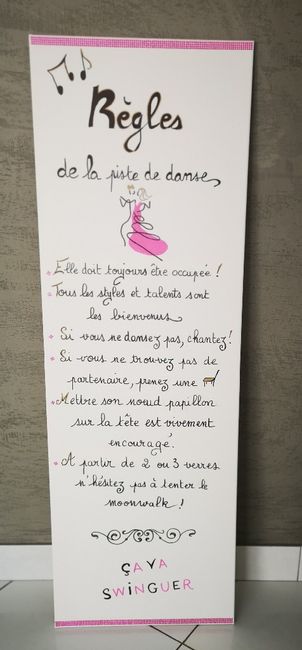 Règles
de la piste de danse
Elle doit toujours être occupée !
Tous les styles et talents sont
les bienvenus
Si vous ne dansez pas, chantez !
Si vous ne trouvez pas de
partenaire, prenez une
Mettre son nœud papillon
sur la tête est vivement
encouragé.
A partir de 2 ou 3 verres
n'hésitez pas à tenter le
moonwalk !
ÇA VA
SWiNGUER